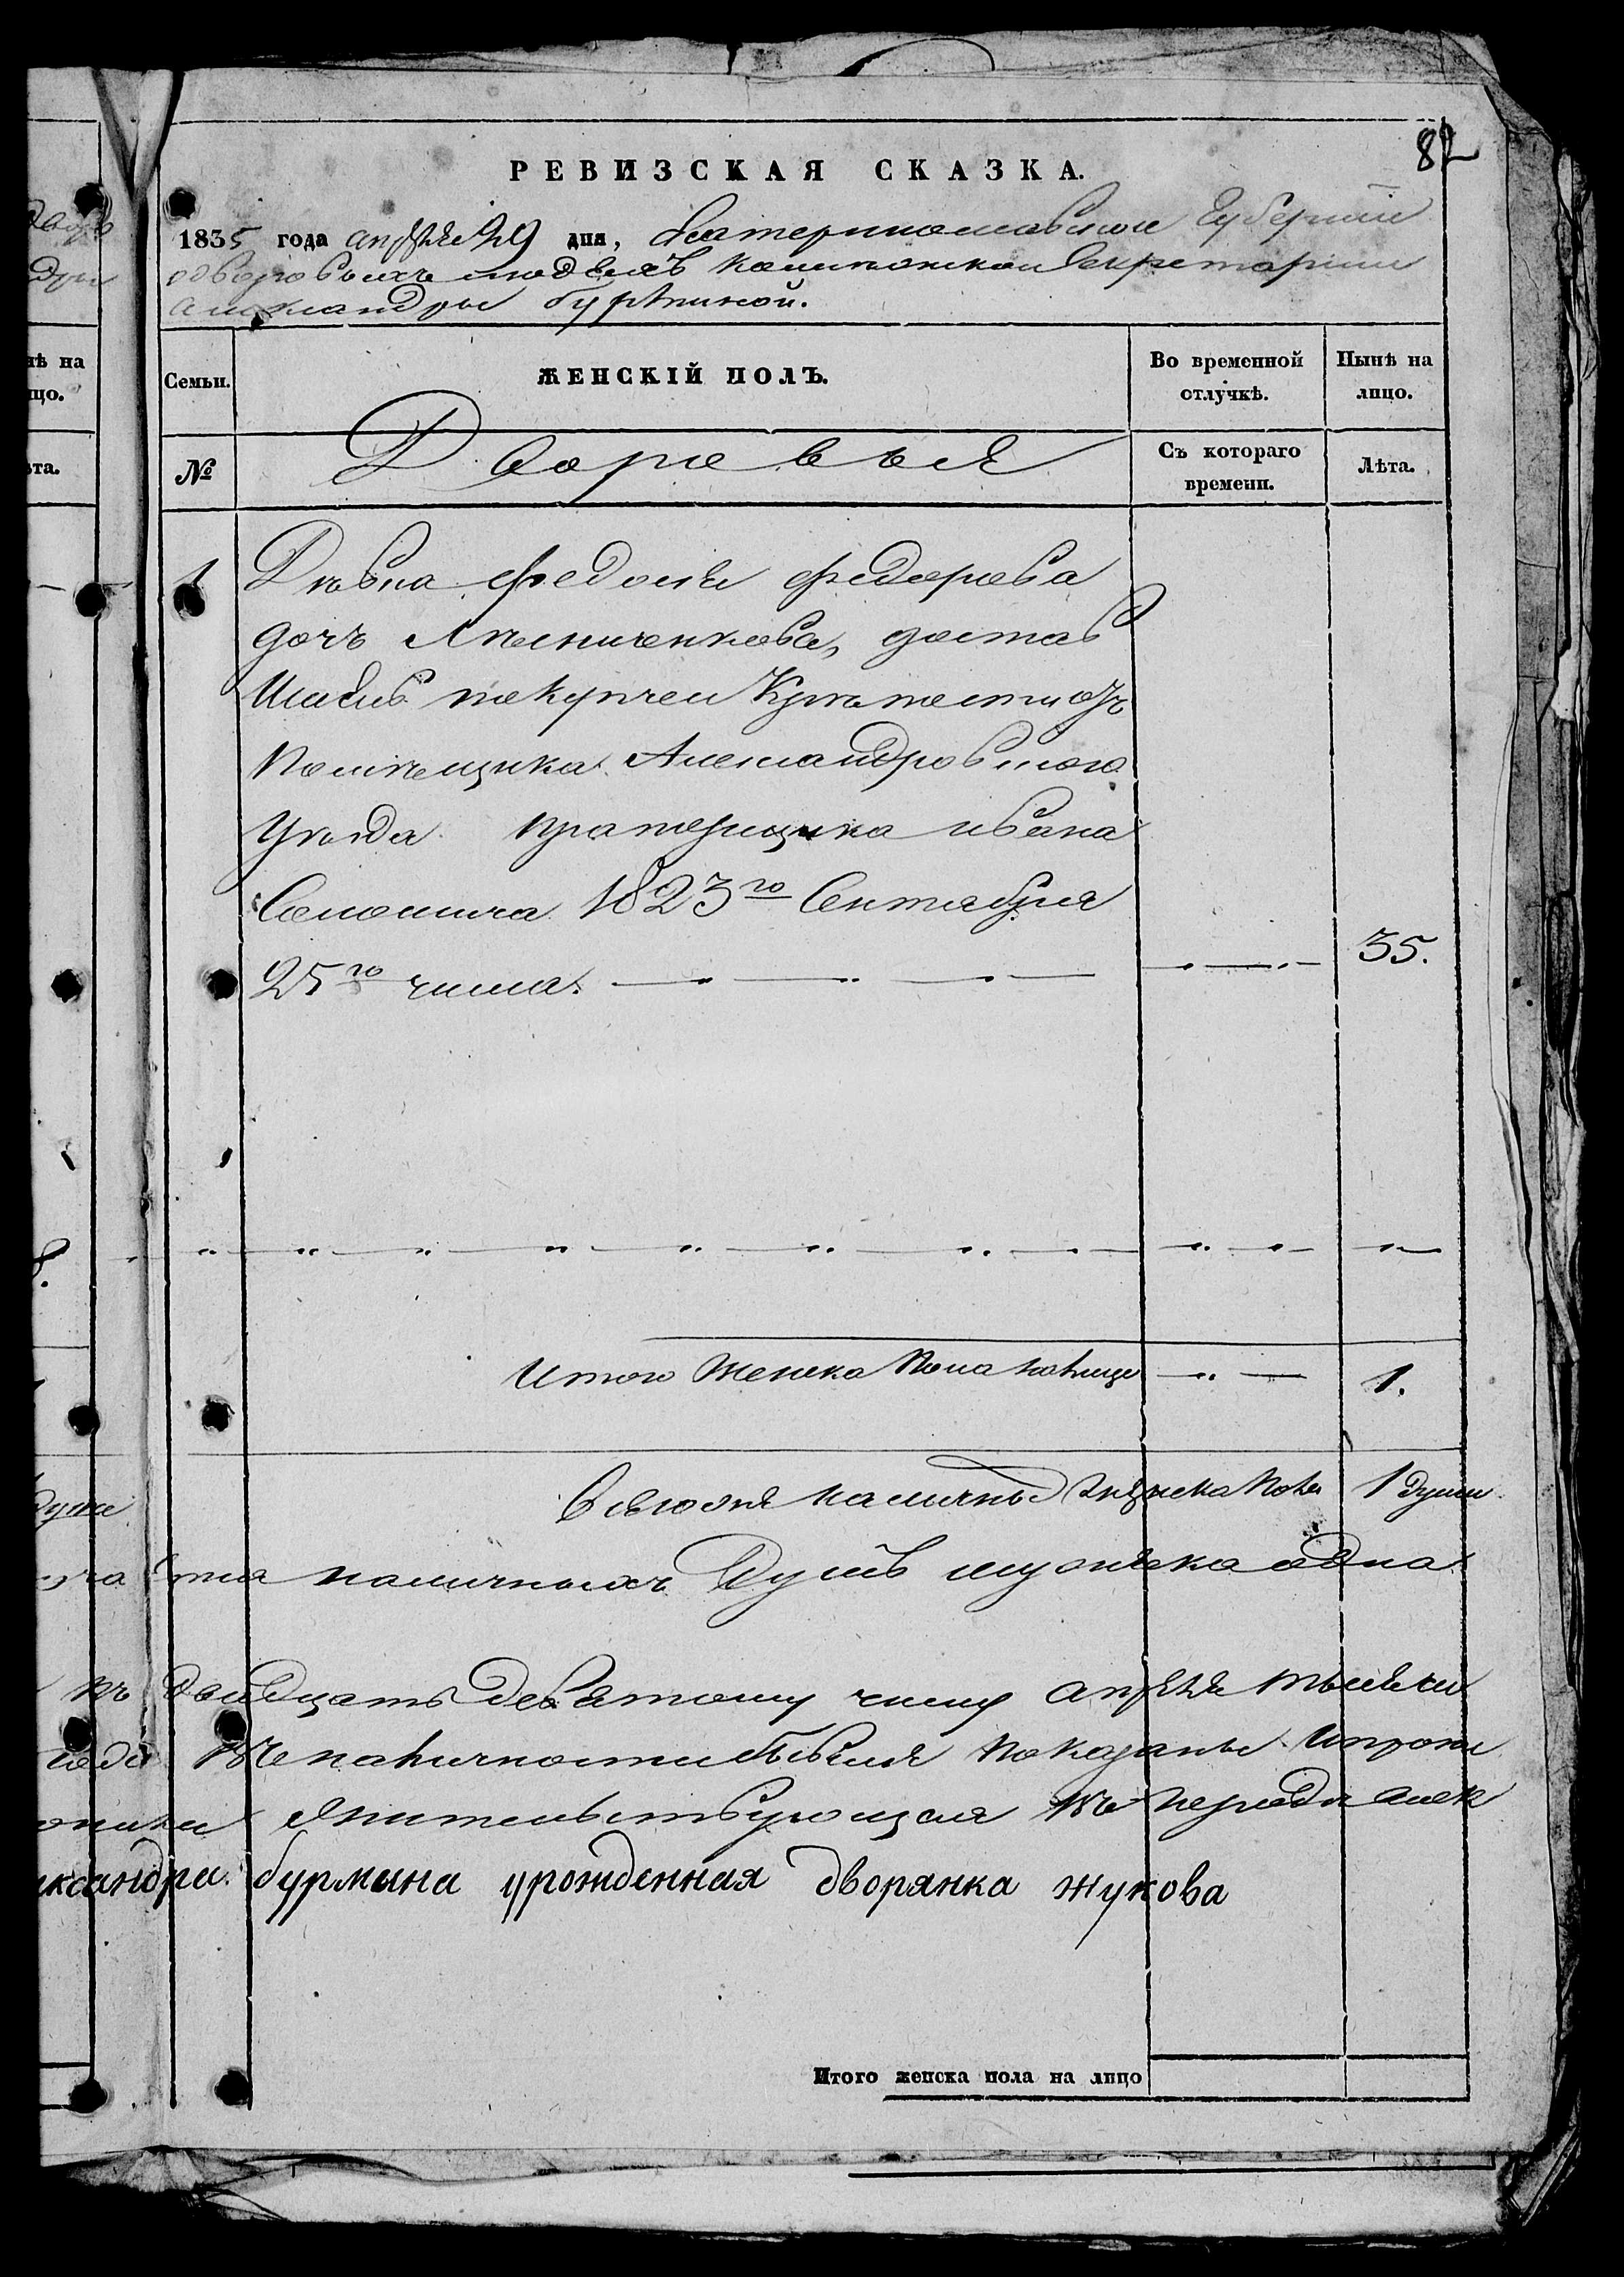 82
РЕВИЗСКАЯ СКАЗКА.
1835 года апреля 29 дня, Екатеринославской Губернии
одворовыхъ людехъ колежской Секретарши
александры бурминой.
нѣ на
цо.
Семьи.
ЖЕНСКІЙ ПОЛЪ.
Во временной отлучкѣ.
Нынѣ на лицо.
ѣта.
№
Дворовыя
Съ котораго времени.
Лѣта.
1 Дѣвка федосья федорова
дочъ Мельниченкова, достав
шаясь покупчей Крѣпости отъ
Помѣщика Александровского
Уѣзда прапорщика ивана
1823го Сентября
25го числа. 35.
8.
Итого Женска Пола налице 1.
Всего наличныхъ Женска Пола 1 душа
души
наличныхъ Душъ мужеска одна
къ двадцать девятому числу апреля тысяча
неналичности бывшия показаны
жительствующая
ександра бурмина урожденная дворянка жукова
Итого женска пола на лицо